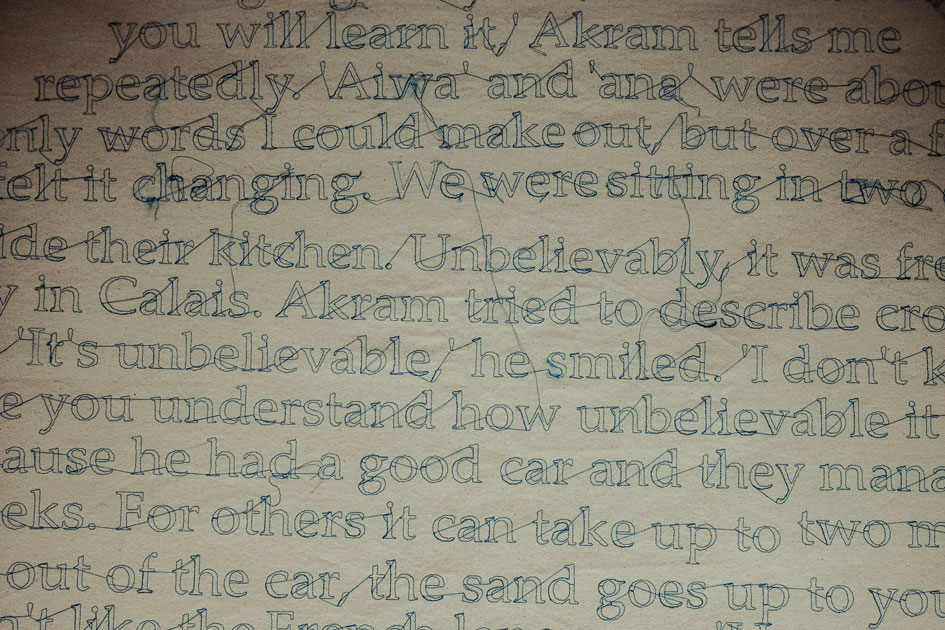 you will learn it,' Akram tells me
repeatedly. 'Aiwa' and 'ana' were abou
only words I could make out, but over a f
felt it changing. We were sitting in two
ide their kitchen. Unbelievably, it was fre
y in Calais. Akram tried to describe cro
'It's unbelievable,' he smiled. 'I don't k
e you understand how unbelievable it
ause he had a good car and they mana
eks. For others it can take up to two m
out of the car, the sand goes up to you
n't like the French